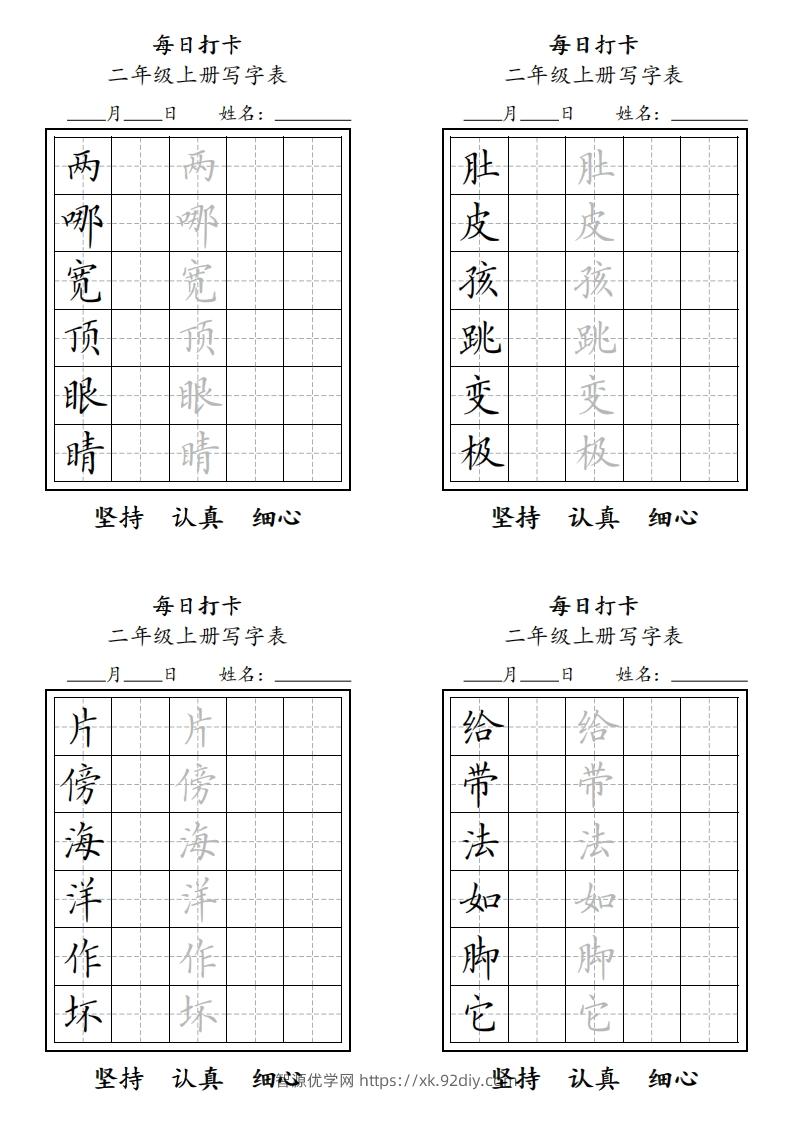 每日打卡
二年级上册写字表
____月____日 姓名：________
两 两
哪 哪
宽 宽
顶 顶
眼 眼
睛 睛
坚持 认真 细心
每日打卡
二年级上册写字表
____月____日 姓名：________
肚 肚
皮 皮
孩 孩
跳 跳
变 变
极 极
坚持 认真 细心
每日打卡
二年级上册写字表
____月____日 姓名：________
片 片
傍 傍
海 海
洋 洋
作 作
坏 坏
坚持 认真 细心
每日打卡
二年级上册写字表
____月____日 姓名：________
给 给
带 带
法 法
如 如
脚 脚
它 它
坚持 认真 细心
智源优学网 https://xk.92diy.com